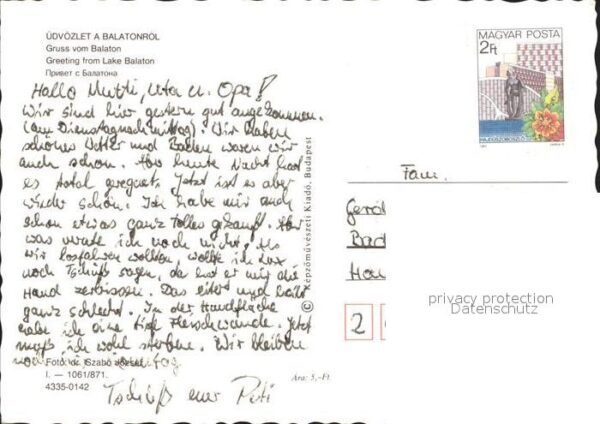 ÜDVÖZLET A BALATONRÓL
Gruss vom Balaton
Greeting from Lake Balaton
Привет с Балатона
Hallo Mutti, Uta u. Opa!
Wir sind hier gestern gut angekommen.
(am Dienstagnachmittag). Wir haben
schönes Wetter und Baden waren wir
auch schon. Aber heute Nacht hat
es total geregnet. Jetzt ist es aber
wieder schön. Ich habe mir auch
schon etwas ganz tolles gekauft. Aber
was verate ich noch nicht. Als
wir losfahren wollten, wollte ich
noch Tschüß sagen, da hat er mir die
Hand zerbissen. Das eitert und heilt
ganz schlecht. In der Handfläche
habe ich eine tiefe Fleischwunde. Jetzt
muß ich wohl sterben. Wir bleiben
noch bis
Tschüß euer Peti
Foto: dr. Szabó József
I. — 1061/871.
4335-0142
Ára: 5,-Ft
© Képzőművészeti Kiadó, Budapest
MAGYAR POSTA
2Ft
HAJDÚSZOBOSZLÓ
Fam.
Gerd
Bad
Hau
2
privacy protection
Datenschutz